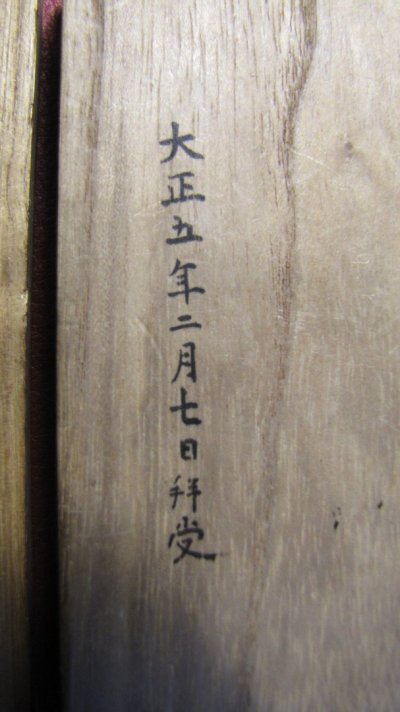 大正五年二月七日拝受